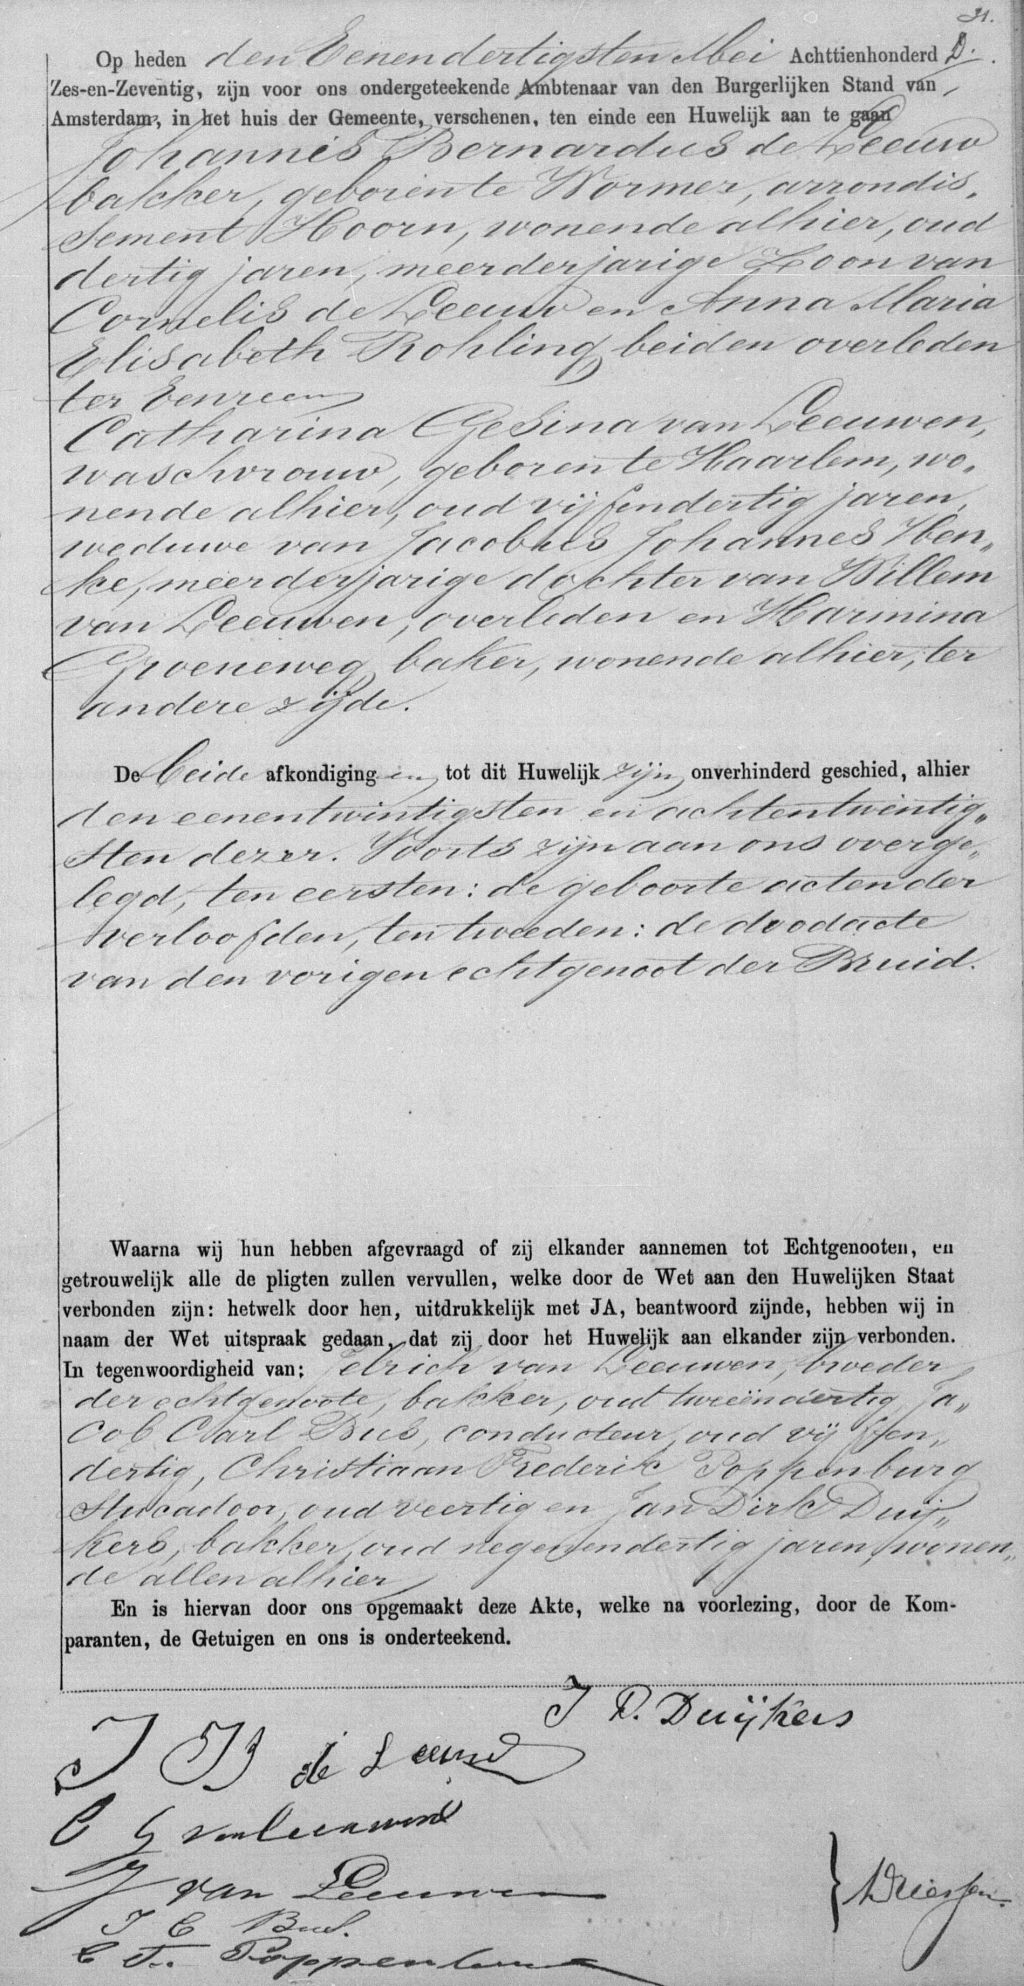 31.
Op heden den Eenendertigsten Mei Achttienhonderd D.
Zes-en-Zeventig, zijn voor ons ondergeteekende Ambtenaar van den Burgerlijken Stand van
Amsterdam, in het huis der Gemeente, verschenen, ten einde een Huwelijk aan te gaan
Johannes Bernardus de Leeuw
bakker, geboren te Wormer, arrondis„
sement Hoorn, wonende alhier, oud
dertig jaren, meerderjarige Zoon van
Cornelis de Leeuw en Anna Maria
Elisabeth Rohling, beiden overleden
ter Eenre en
Catharina Gesina van Leeuwen,
waschvrouw, geboren te Haarlem, wo„
nende alhier, oud vijfendertig jaren,
weduwe van Jacobus Johannes Hen„
ke, meerderjarige dochter van Willem
van Leeuwen, overleden en Harmina
Groeneweg, baker, wonende alhier, ter
andere zijde.
De beide afkondigingen tot dit Huwelijk zijn onverhinderd geschied, alhier
den eenentwintigsten en achtentwintig„
sten dezer. Voorts zijn aan ons overge„
legd, ten eersten: de geboorte acten der
verloofden, ten tweeden: de doodacte
van den vorigen echtgenoot der Bruid.
Waarna wij hun hebben afgevraagd of zij elkander aannemen tot Echtgenooten, en
getrouwelijk alle de pligten zullen vervullen, welke door de Wet aan den Huwelijken Staat
verbonden zijn: hetwelk door hen, uitdrukkelijk met JA, beantwoord zijnde, hebben wij in
naam der Wet uitspraak gedaan, dat zij door het Huwelijk aan elkander zijn verbonden.
In tegenwoordigheid van: van Leeuwen, broeder
der echtgenoote, bakker, oud tweeëndertig, Ja„
cob Carl Bus, conducteur, oud vijfen„
dertig, Christiaan Frederik Poppenburg
Stucadoor, oud veertig en Jan Dirk Duij„
kers, bakker, oud negenendertig jaren, wonen„
de allen alhier
En is hiervan door ons opgemaakt deze Akte, welke na voorlezing, door de Kom-
paranten, de Getuigen en ons is onderteekend.
J D. Duijkers
J B de Leeuw
C G van Leeuwen
J van Leeuwen
J C Bus.
C F. Poppenburg